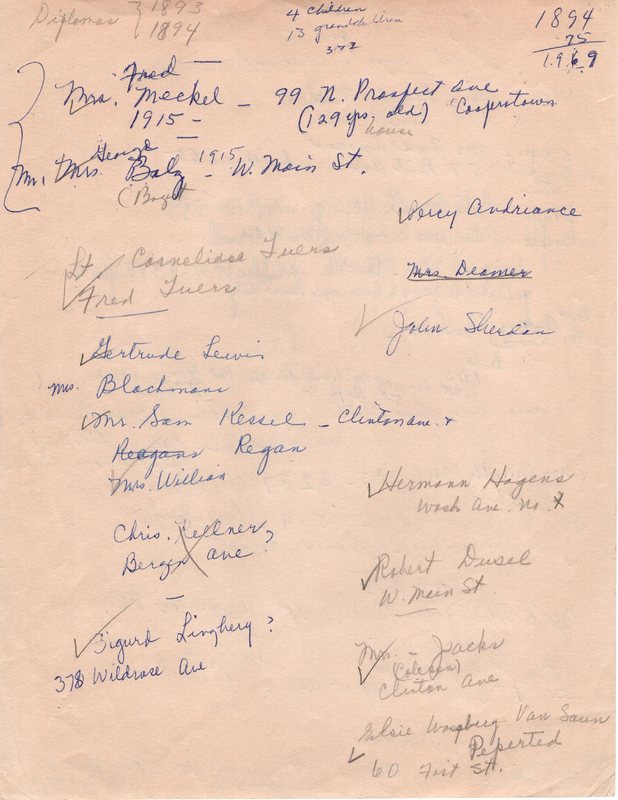 Diplomas } 1893
1894
4 children
13 grandchildren
1894
75
1969
Fred
Mrs. Meckel – 99 N. Prospect Ave
1915 – (129 yrs. old) Cooperstown
house
George
Mr. Mrs. Balz – 1915 – W. Main St.
Percy Andriance
Lt. Cornelious Tuers
Fred Tuers
Mrs. Deamer
John Sheridan
Gertrude Lewis
Mrs. Blackmans
Mr. Sam Kessel – Clinton Ave.
Reagans Regan
Mrs. Willian
Hermann Hagens
Wash Ave. No.
Chris. Kellner,
Bergen Ave
Robert Dusel
W. Main St
Sigurd Lingberg?
378 Wildrose Ave
Mrs. – Jacks
Clinton Ave
Elsie Van Saun
60 First St.